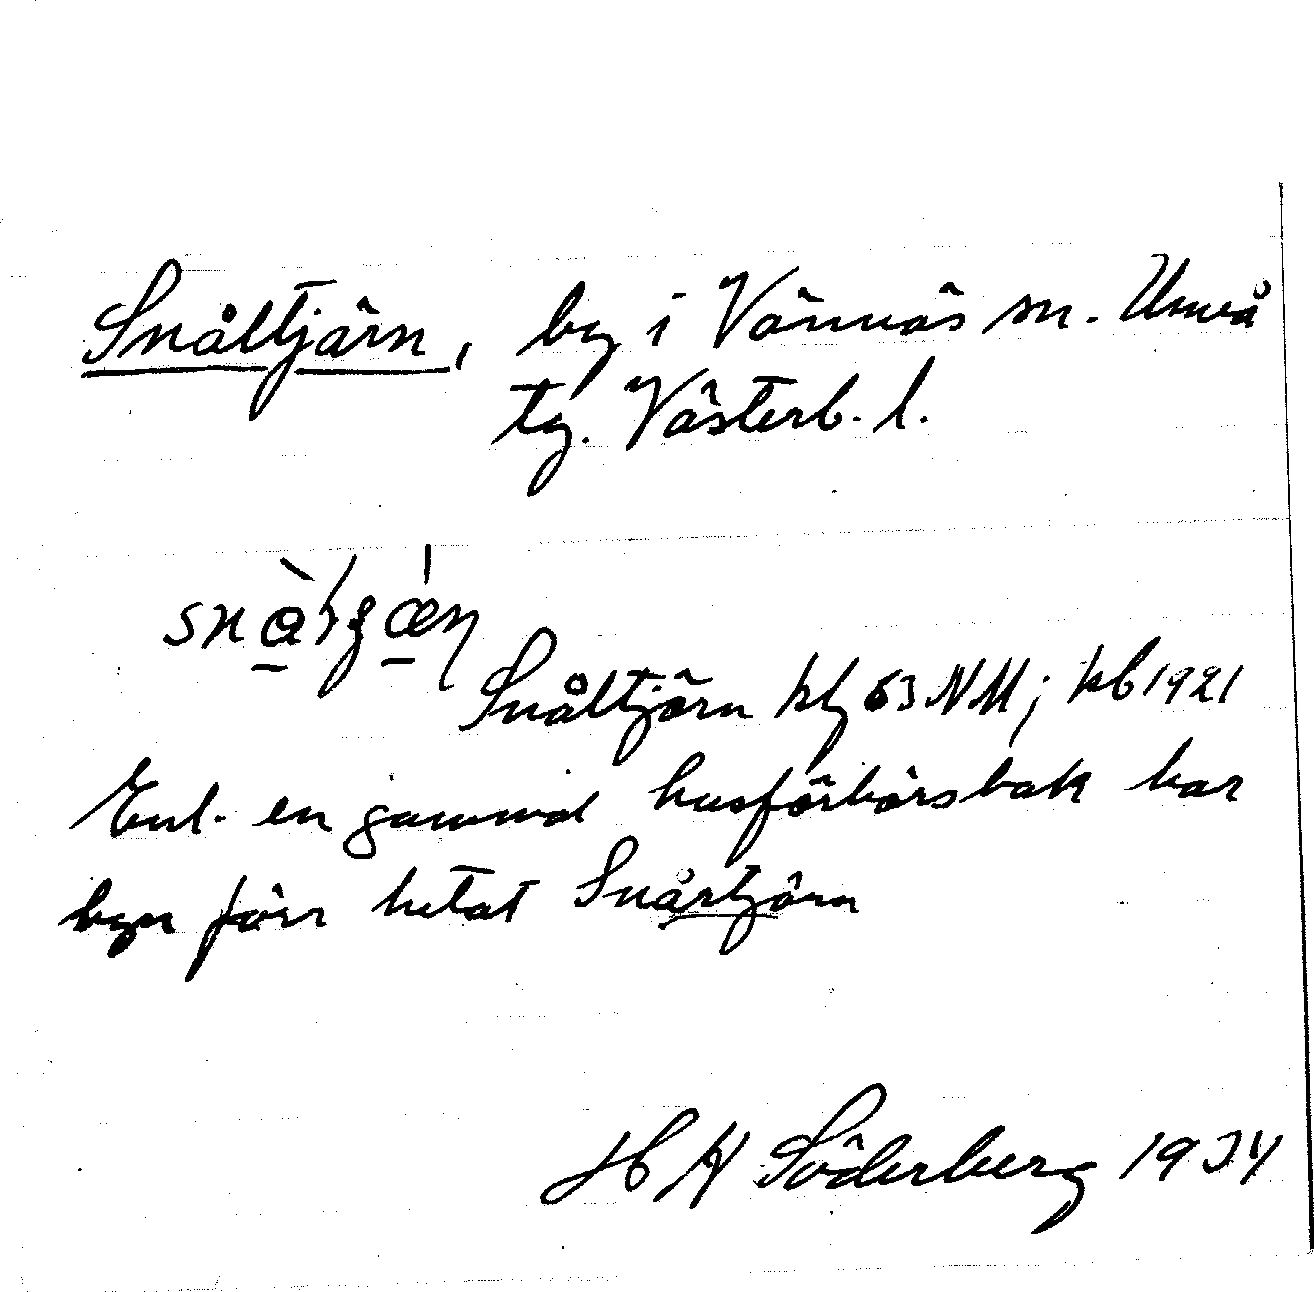 Snåltjärn, by i Vännäs sn. Umeå
tg. Västerb. l.
Snåltjärn kbl 63 NM; kb 1921
Enl. en gammal husförhörsbok har
byn förr hetat Snårtjärn
H Söderberg 1934